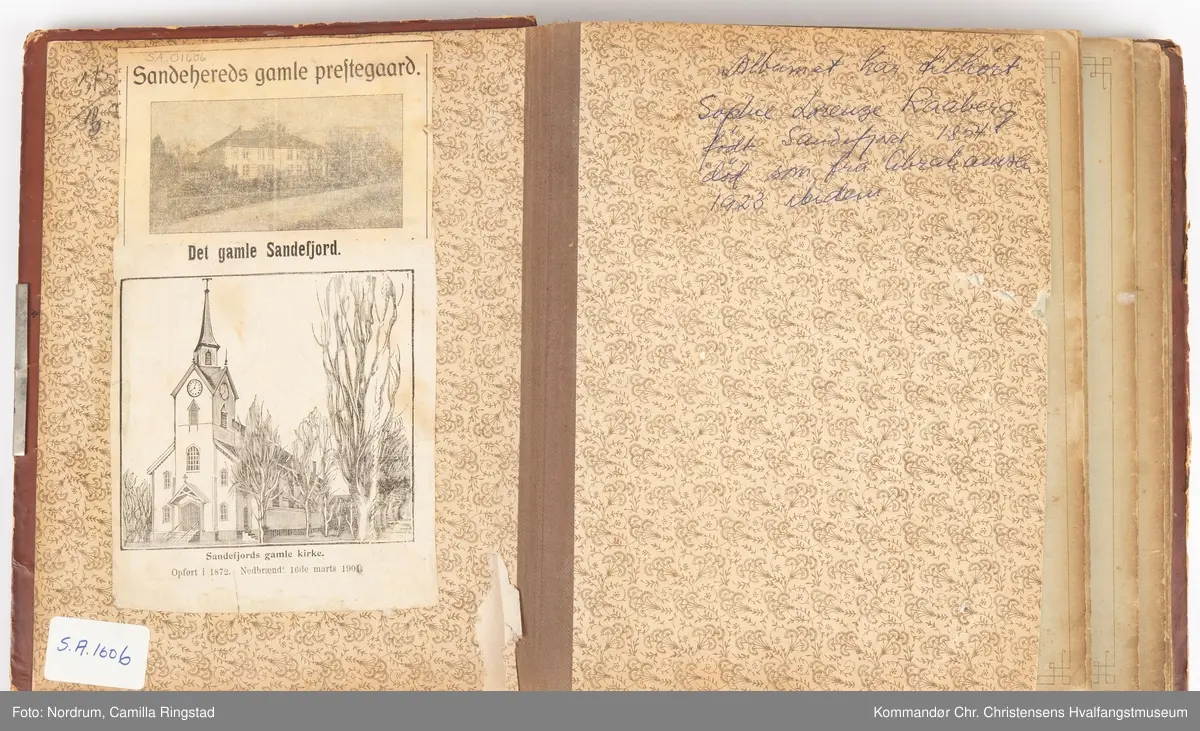 S.A. 01606
Sandehereds gamle prestegaard.
Det gamle Sandefjord.
Sandefjords gamle kirke.
Opført i 1872. Nedbrændt 16de marts 190
S.A. 1606
Albumet har tilhørt
Sophie Lorenze Raaberg
født Sandefjord 1854
død som fru Abrahamsen
1923 ibidem
Foto: Nordrum, Camilla Ringstad
Kommandør Chr. Christensens Hvalfangstmuseum